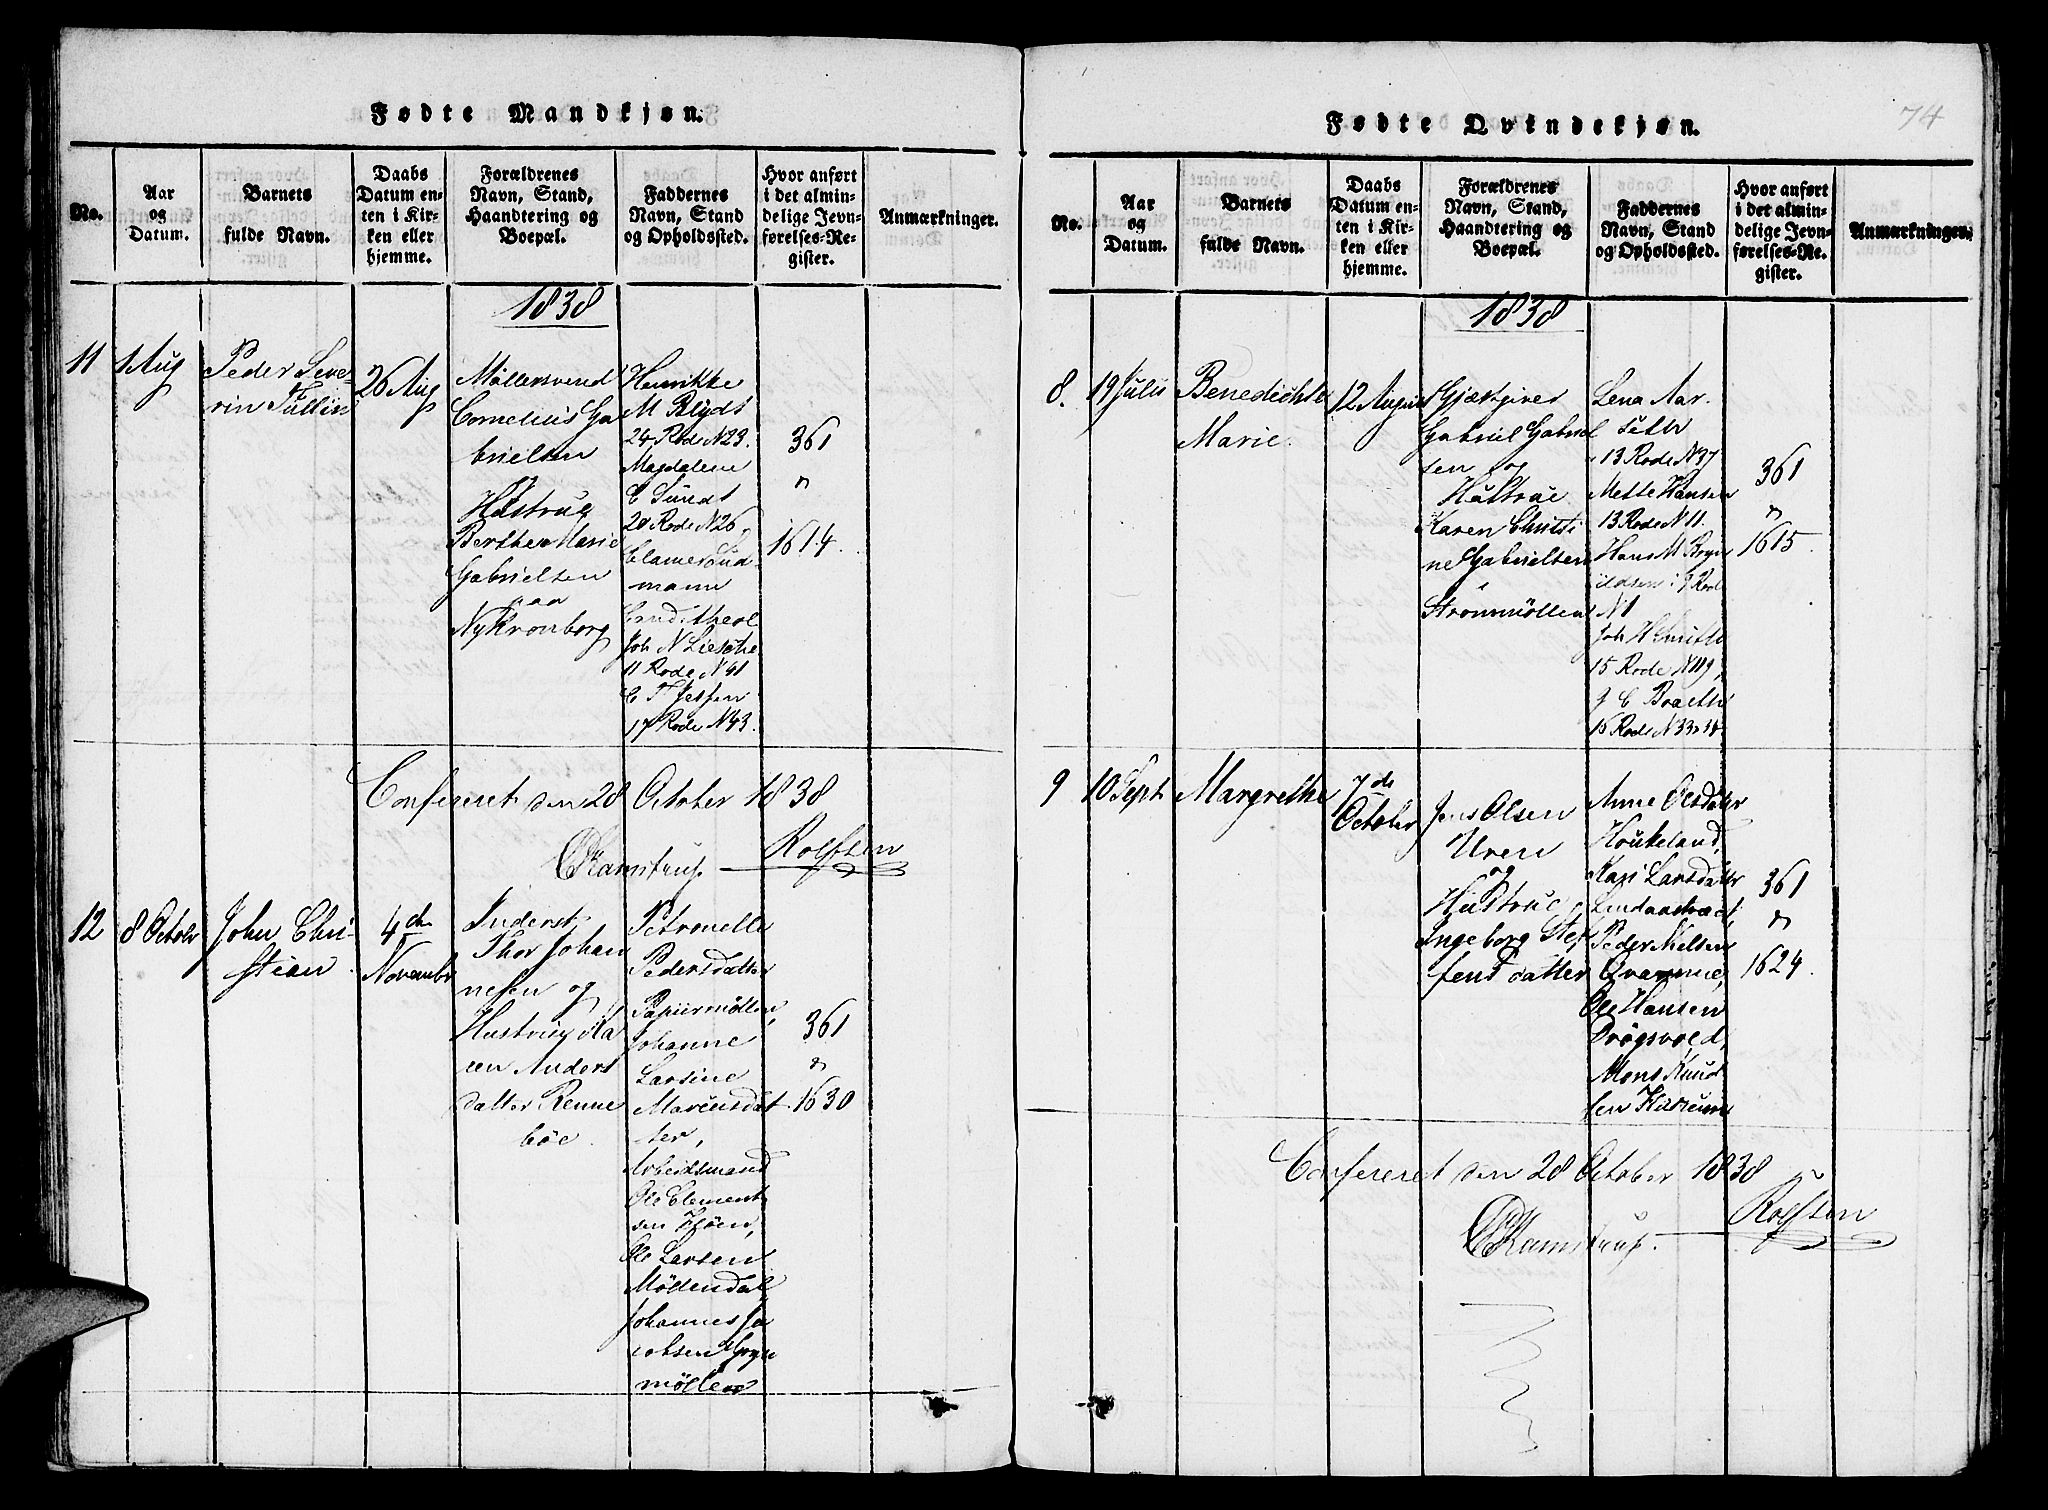 Fødte Mandkjøn.
No.
Aar
og
Datum.
Barnets
fulde Navn.
Daabs
Datum en-
ten i Kir-
ken eller
hjemme.
Forældrenes
Navn, Stand,
Haandtering og
Boepæl.
Faddernes
Navn, Stand
og Opholdssted.
Hvor anført
i det almin-
delige Jevn-
førelses-Re-
gister.
Anmærkninger.
1838
11
1 Aug
Peder Seve-
rin Tullin
26 Aug
Møllersvend
Cornelius Ga
brielsen
og
Hustrue
Berthe Marie
Gabrielsen
paa
Ny Kronborg
Henrikke
M Blydt
24 Rode N 23.
Magdalene
C Sundt
20 Rode N 26,
Clamer Sund-
mann
Cand. theol
Joh N Liesche
11 Rode N 41
C T Jessen
17 Rode N 43.
361
n
1614.
Confereret den 28 October 1838
CRamstrup. Rolfsen
12
8 Octobr
John Chri-
stian
4de
Novembr
Inderst
Thor Johan
nesen og
Hustrue Ka
ren Anders
datter Renne
böe.
Petronelle
Pedersdatter
Papiermöllen,
Johanne
Larsine
Marcusdat
ter,
Arbeidsmand
Ole Clement
sen
Ole Larsen
Möllendal
Johannes Ja
cobsen
möllen
361
n
1630
Fødte Qvindekjøn.
74
No.
Aar
og
Datum.
Barnets
fulde Navn.
Daabs
Datum en-
ten i Kir-
ken eller
hjemme.
Forældrenes
Navn, Stand,
Haandtering og
Boepæl.
Faddernes
Navn, Stand
og Opholdssted.
Hvor anført
i det almin-
delige Jevn-
førelses-Re-
gister.
Anmærkninger.
1838
8.
19 Julii
Benedichte
Marie.
12 August
Gjæstgiver
Gabriel Gabriel
sen og
Hustrue
Karen Christi
ne Gabrielsen
i
Strømmöllen
Lena Aar-
seth
13 Rode N 37
Mette Hansen
13 Rode N 11.
Hans M Bryn
ildsen i 9 Rode
N 1
Joh H Smith
15 Rode N 119,
J C Braeth
16 Rode
361
n
1615.
9
10 Sept
Margrethe
7de
October
Jens Olsen
Uren
og
Hustrue
Ingeborg Stef
fens datter
Anne Olsdatter
Houkeland,
Kari Larsdatter
Lindaastræet,
Peder Nielsen
Qvamme,
Ole Hansen
Drøgsvold,
Mons Knud
sen
361
n
1624.
Confereret den 28 October 1838
CRamstrup. Rolfsen